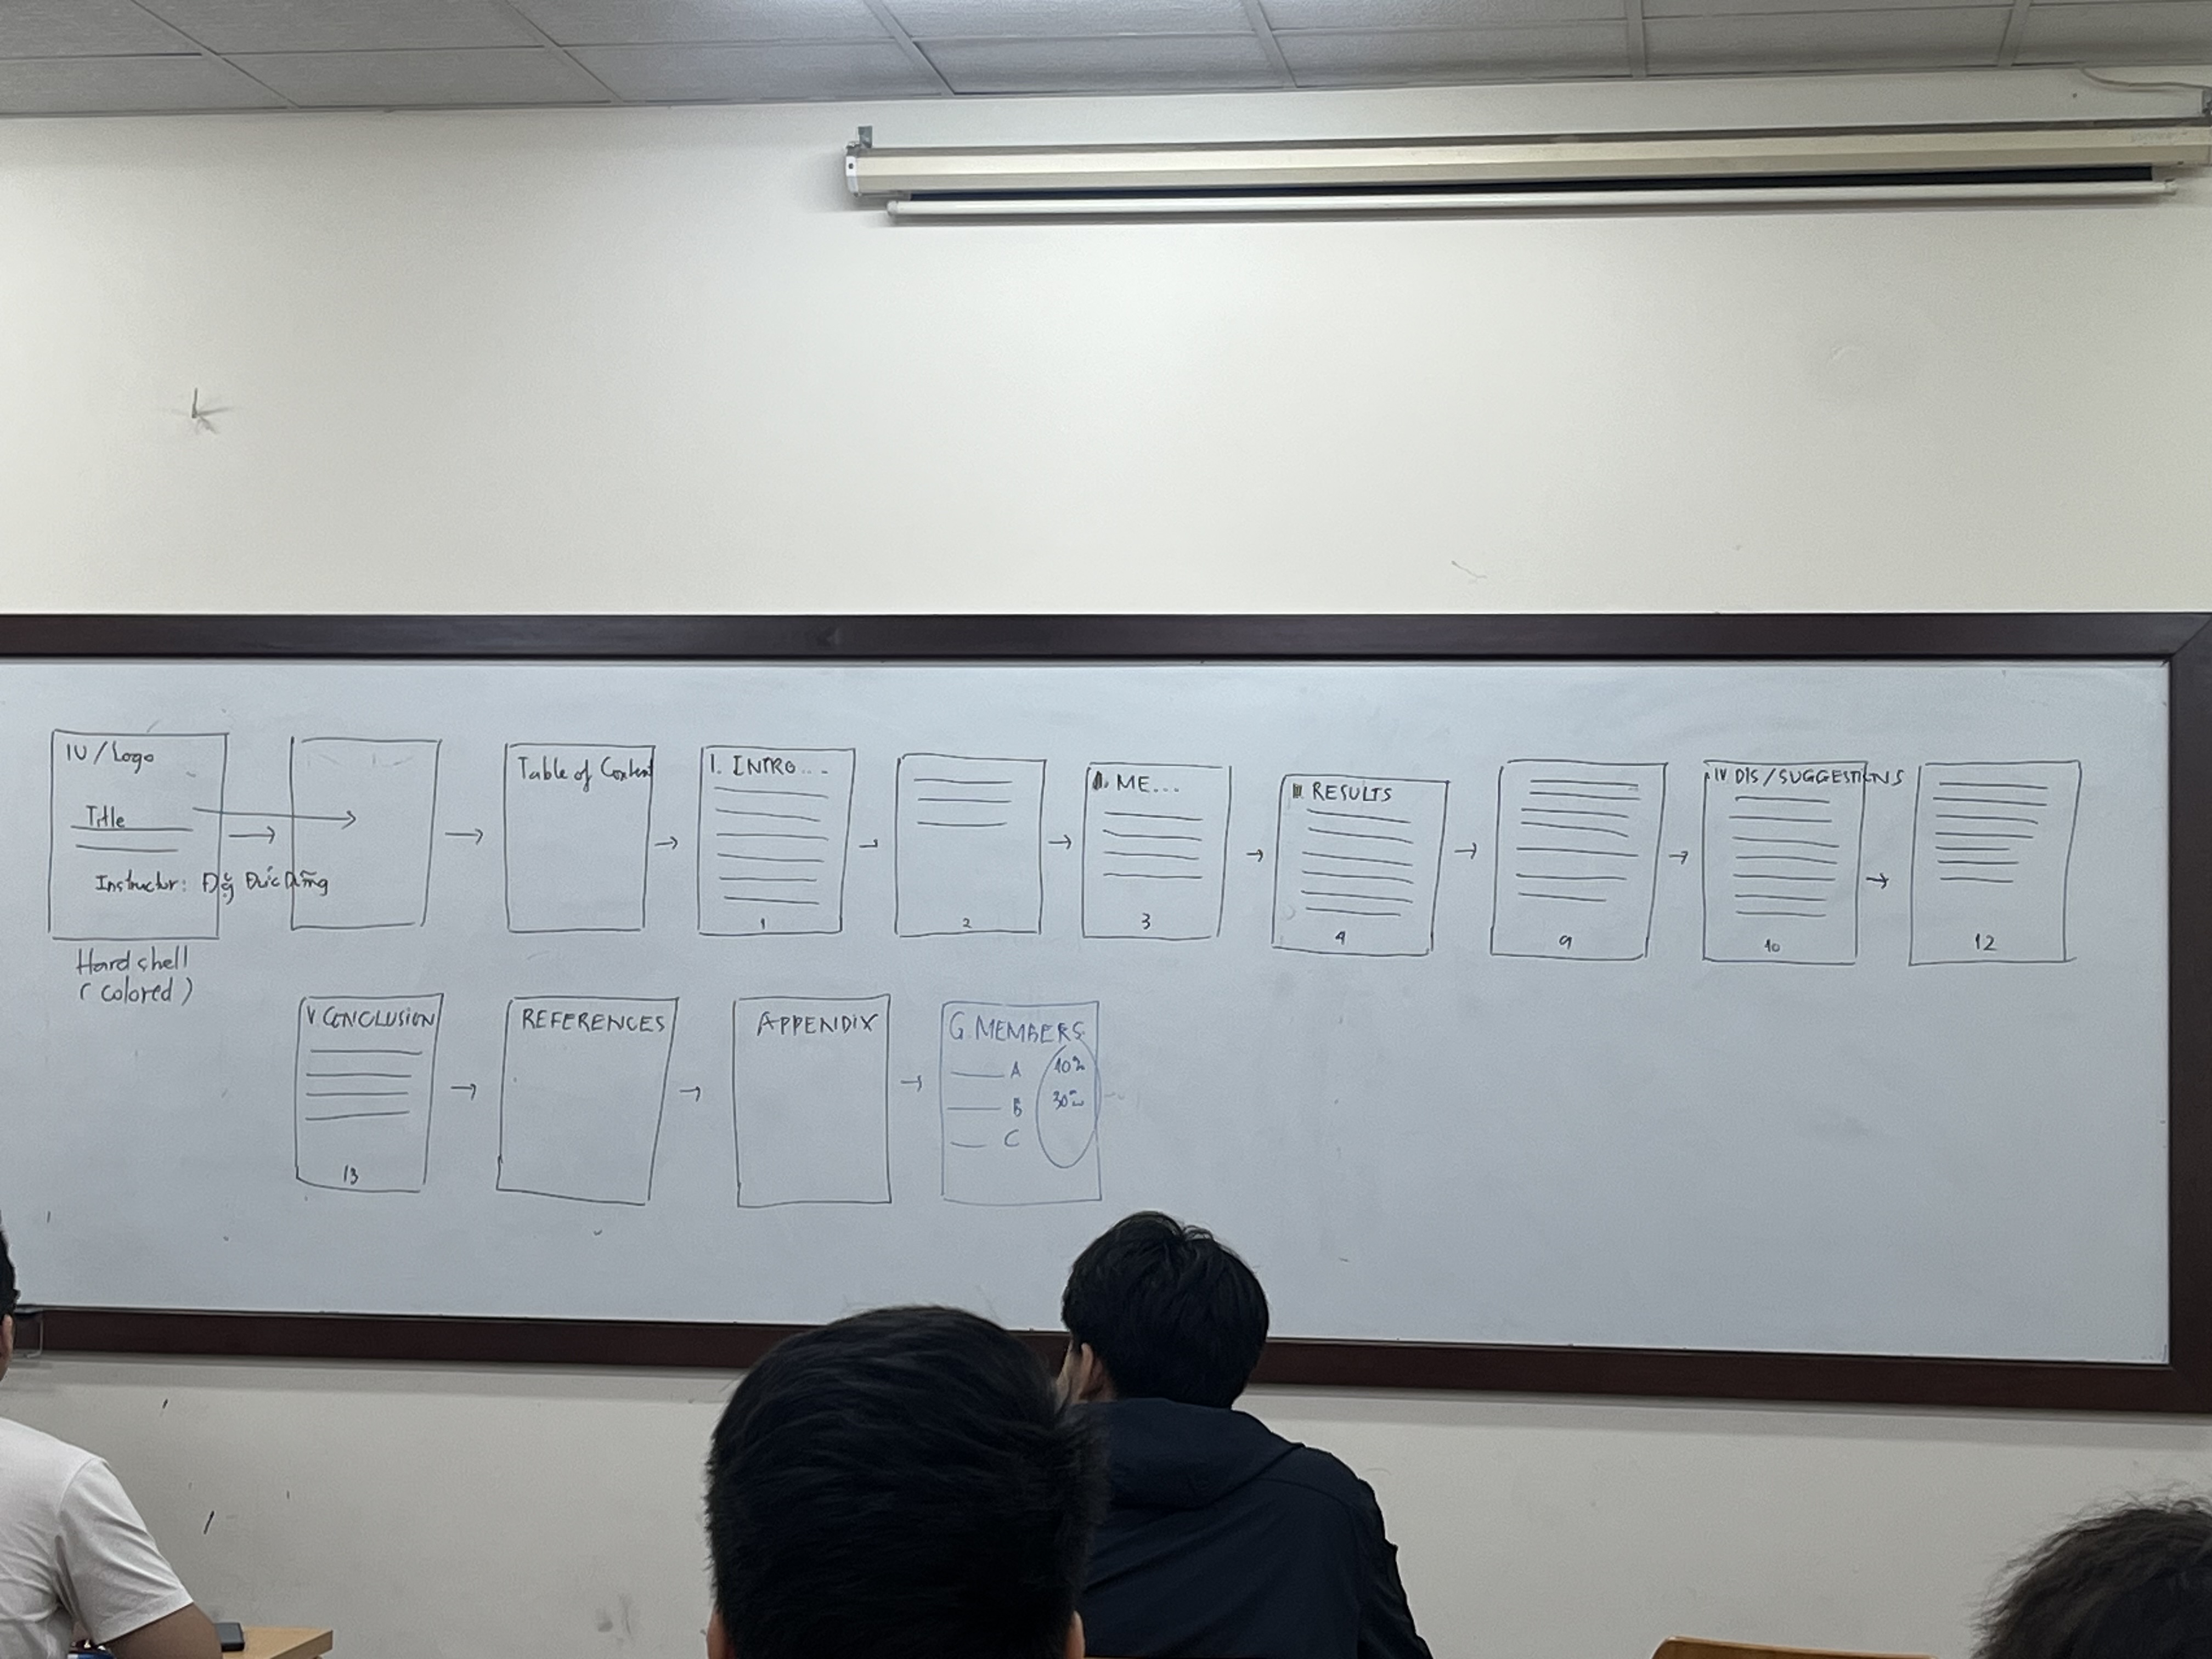 IU / Logo
Title
Instructor: Đức Dũng
Hard shell
(colored)
Table of Content
I. INTRO...
1
2
II. ME...
3
III RESULTS
4
9
IV DIS/SUGGESTIONS
10
12
V CONCLUSION
13
REFERENCES
APPENDIX
G. MEMBERS
A
B
C